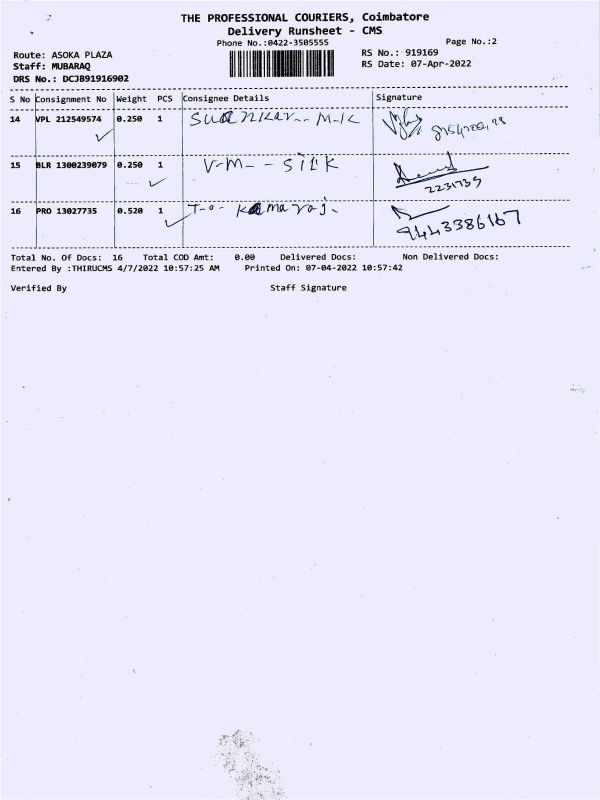 THE PROFESSIONAL COURIERS, Coimbatore
Delivery Runsheet - CMS
Phone No.:0422-3505555
Page No.:2
Route: ASOKA PLAZA
RS No.: 919169
Staff: MUBARAQ
RS Date: 07-Apr-2022
DRS No.: DCJB91916902
S No Consignment No Weight PCS Consignee Details Signature
14 VPL 212549574 0.250 1
15 BLR 1300239079 0.250 1 V-M-- SILK
2231739
16 PRO 13027735 0.520 1 T-o- Kamaraj.
9443386167
Total No. Of Docs: 16 Total COD Amt: 0.00 Delivered Docs: Non Delivered Docs:
Entered By :THIRUCMS 4/7/2022 10:57:25 AM Printed On: 07-04-2022 10:57:42
Verified By Staff Signature